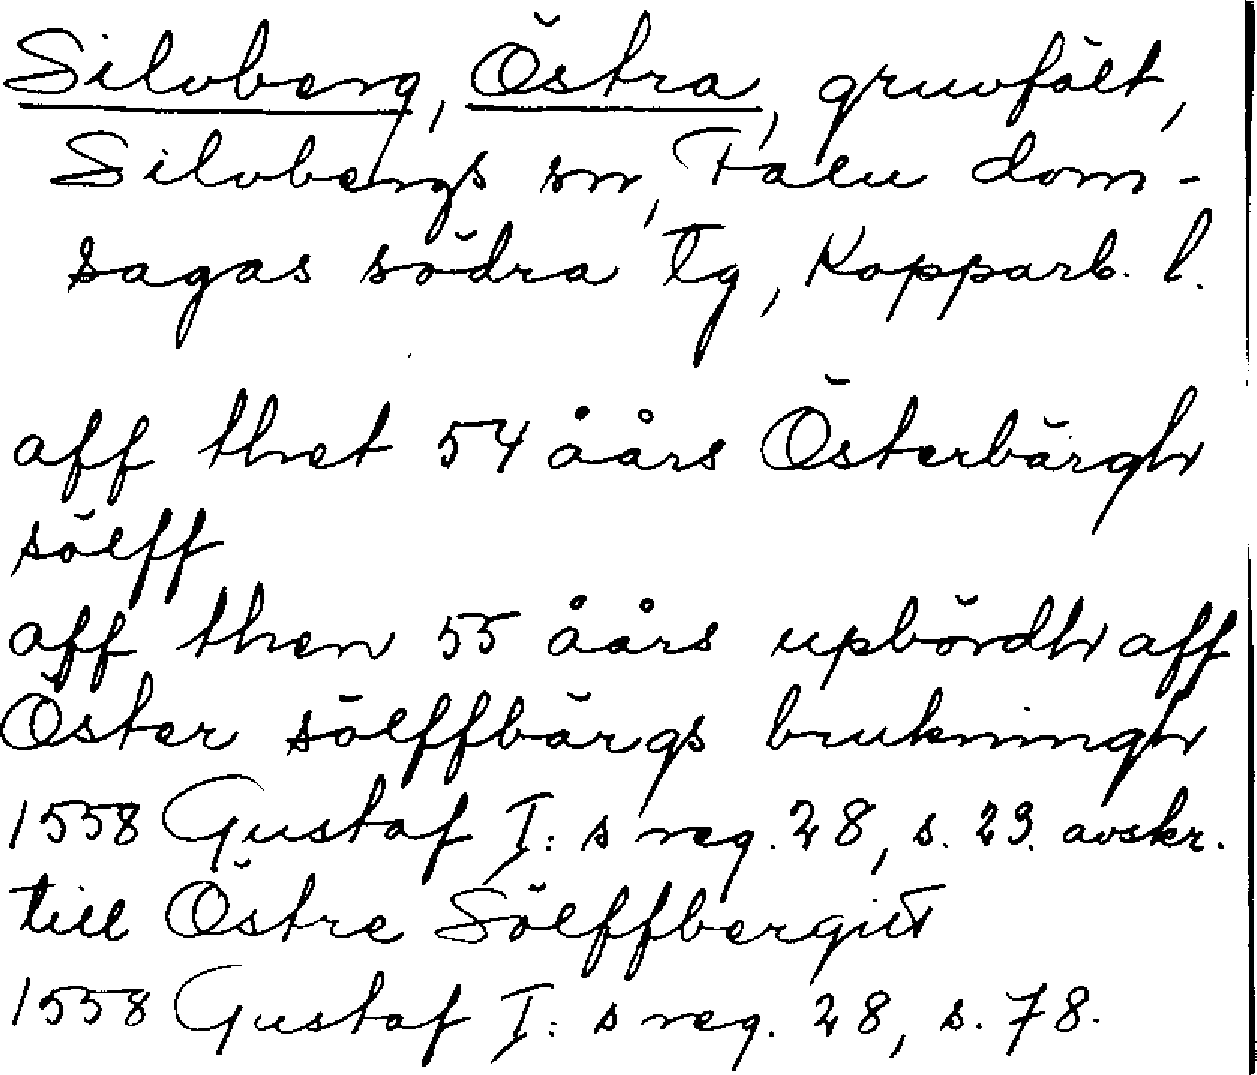 Silvberg, Östra, gruvfält,
Silvbergs sn, Falu dom-
sagas södra tg, Kopparb. l.
aff thet 54 åårs Österbärgh
sölff
aff then 55 åårs upbördh aff
Öster sölffbärgs brukningh
1558 Gustaf I: s reg. 28, s. 23. avskr.
till Östre Sölffbergitt
1558 Gustaf I: s reg. 28, s. 78.